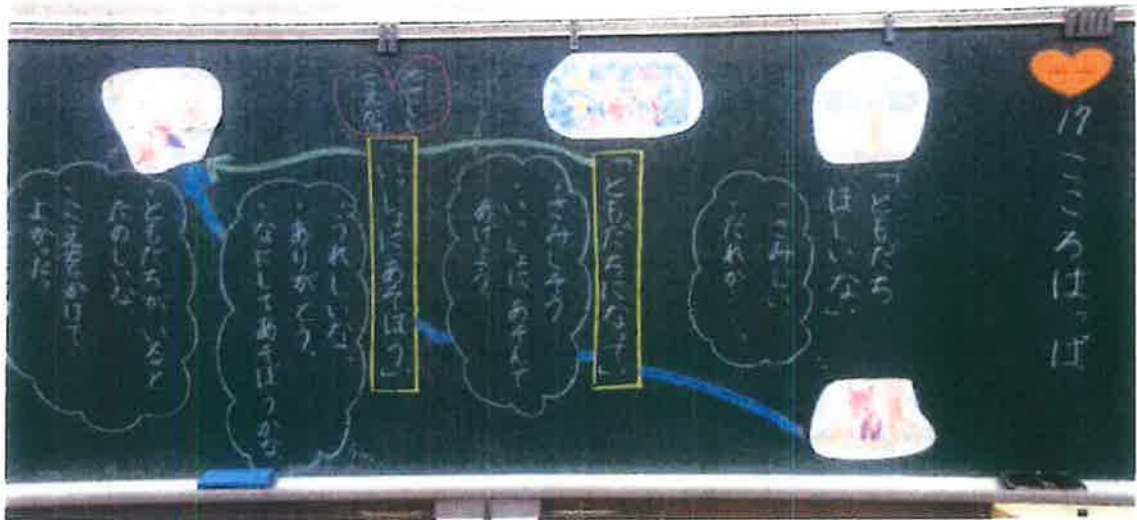 17 こころはっぱ
「ともだち
ほしいな」
・さみしい
・だれか‥
「ともだちになって」
・さみしそう
・いっしょに、あそんで
あげよう
「いっしょにあそぼう」
・うれしいな
・ありがとう。
・なにしてあそぼうかな
・ともだちが、いると
たのしいな
・こえをかけて、
よかった。